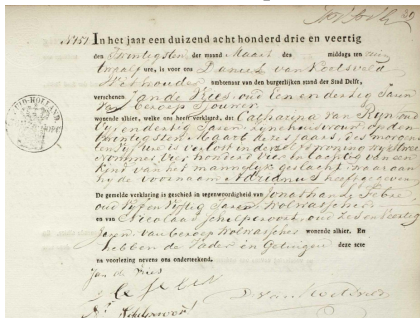 No. 151
In het jaar een duizend acht honderd drie en veertig
den Twintigsten der maand Maart des middags ten
ure, is voor ons Daniel van
Wethouder ambtenaar van den burgerlijken stand der Stad Delft,
verschenen Jan de Vries oud Een en dertig Jaren
Van beroep
wonende alhier, welke ons heeft verklaard, dat Catharina van Rijn oud
en dertig Jaren zijne huisvrouw op den
Maart dezes Jaars, des morgens
ure is verlost in derzelver woning
nommer Vier honderd Vier en tachtig van een
kind van het mannelijk geslacht, waaraan
hij de voornaam Adrianus heeft gegeven
De gemelde verklaring is geschied in tegenwoordigheid van Jonathan
oud Vijf en Vijftig Jaren, Wolwasscher
en van Nicolaas Schilperoort, oud Zes en Veertig
Jaren van beroep Wolwasscher wonende alhier. En
hebben de Vader en Getuigen deze acte
na voorlezing nevens ons onderteekend.
Jan de Vries
N. Schilperoort